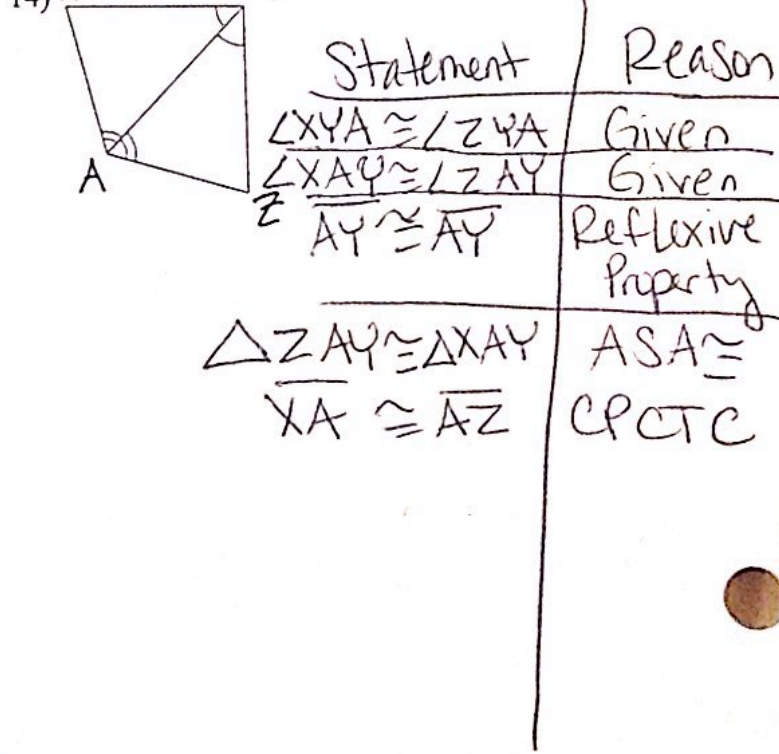 14)
A
Z
Statement Reason
∠XYA ≅ ∠ZYA Given
∠XAY ≅ ∠ZAY Given
A̅Y̅ ≅ A̅Y̅ Reflexive
Property
△ZAY ≅ △XAY ASA ≅
X̅A̅ ≅ A̅Z̅ CPCTC